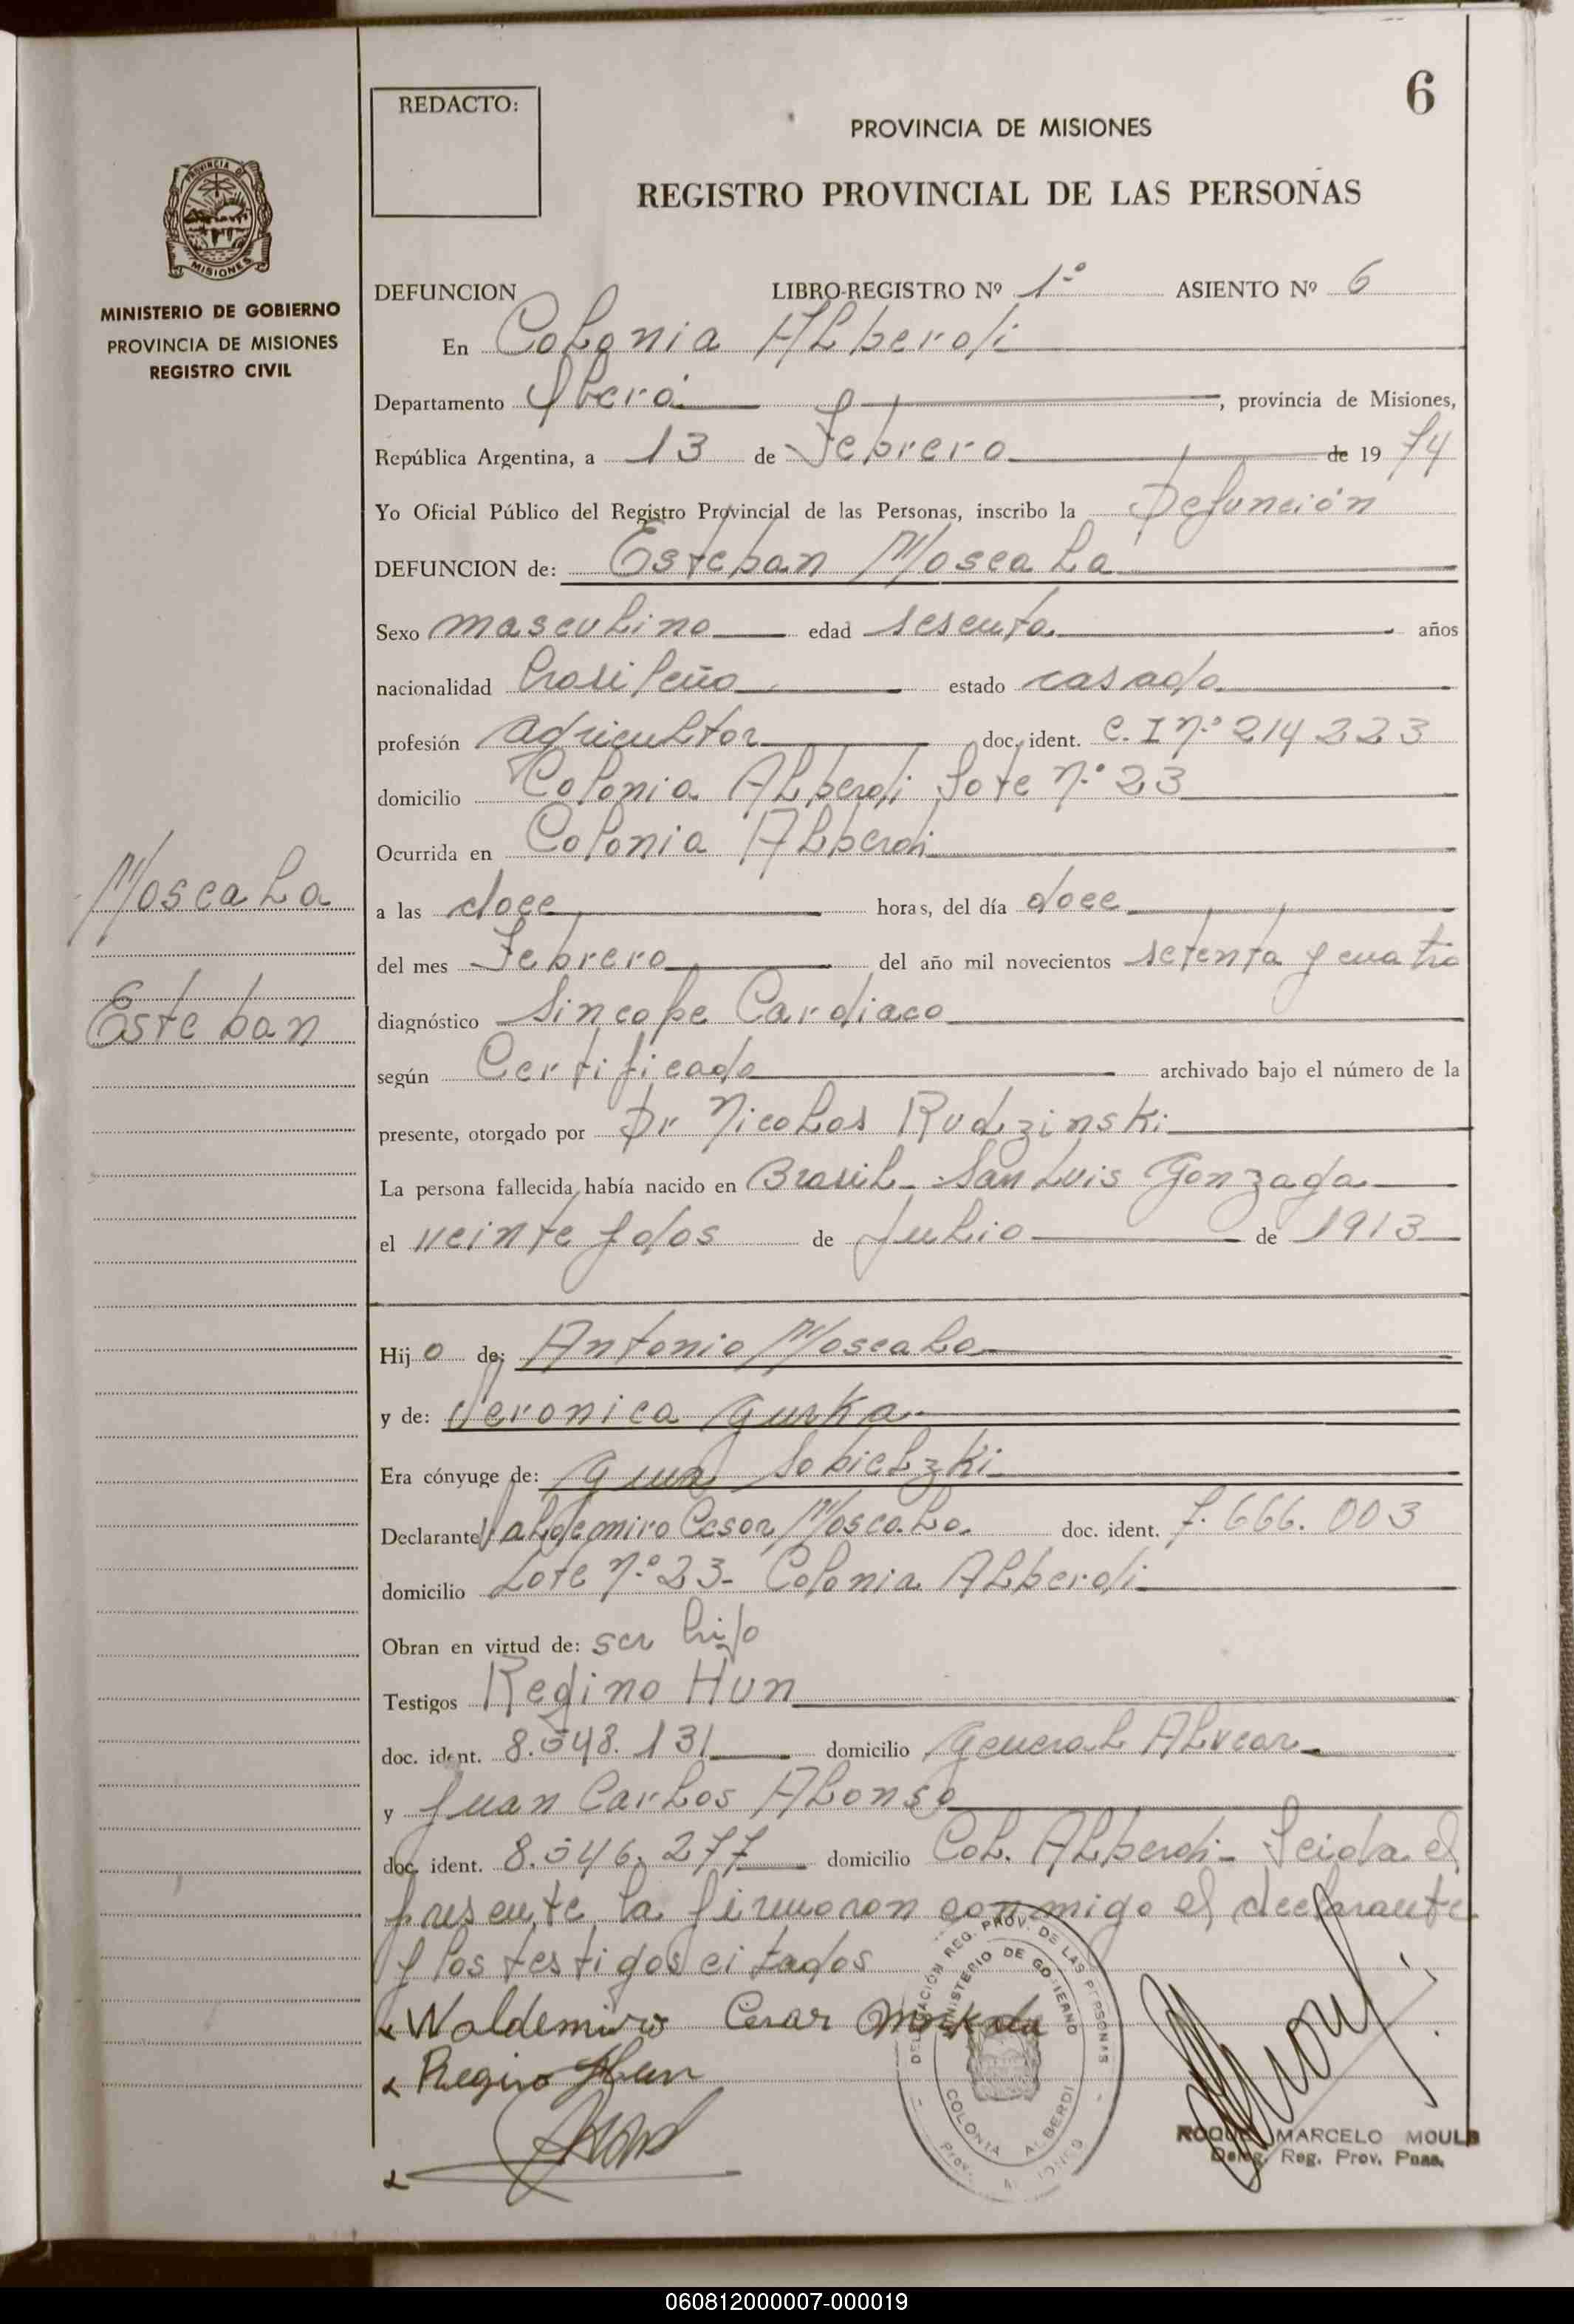 6
REDACTO:
PROVINCIA DE MISIONES
REGISTRO PROVINCIAL DE LAS PERSONAS
PROVINCIA DE
MISIONES
MINISTERIO DE GOBIERNO
PROVINCIA DE MISIONES
REGISTRO CIVIL
DEFUNCION LIBRO-REGISTRO Nº 1º ASIENTO Nº 6
En Colonia Alberdi
Departamento Oberá, provincia de Misiones,
República Argentina, a 13 de Febrero de 1974
Yo Oficial Público del Registro Provincial de las Personas, inscribo la Defunción
DEFUNCION de: Esteban Moscala
Sexo masculino edad sesenta años
nacionalidad brasileño estado casado
profesión agricultor doc. ident. C. I nº 214 223
domicilio Colonia Alberdi Lote nº 23
Ocurrida en Colonia Alberdi
Moscala
a las doce horas, del día doce
del mes Febrero del año mil novecientos setenta y cuatro
Esteban
diagnóstico Sincope Cardiaco
según Certificado archivado bajo el número de la
presente, otorgado por Dr Nicolas Rudzinski
La persona fallecida, había nacido en Brasil - San Luis Gonzaga
el veinte y dos de Julio de 1913
Hijo de: Antonio Moscala
y de: Veronica Guska
Era cónyuge de: Sobielzki
Declarante Valdemiro Cesar Moscala doc. ident. 7.666.003
domicilio Lote nº 23 - Colonia Alberdi
Obran en virtud de: ser hijo
Testigos Regino Hun
doc. ident. 8.548.131 domicilio General Alvear
y Juan Carlos Alonso
doc. ident. 8.546.277 domicilio Col. Alberdi - Leida el
presente la firmaron conmigo el declarante
y los testigos citados
x Waldemiro Cesar Moskala
x Regino Hun
x
DELEGACIÓN REG. PROV. DE LAS PERSONAS
MINISTERIO DE GOBIERNO
COLONIA ALBERDI
ROQUE MARCELO MOULE
Deleg. Reg. Prov. Pnas.
060812000007-000019